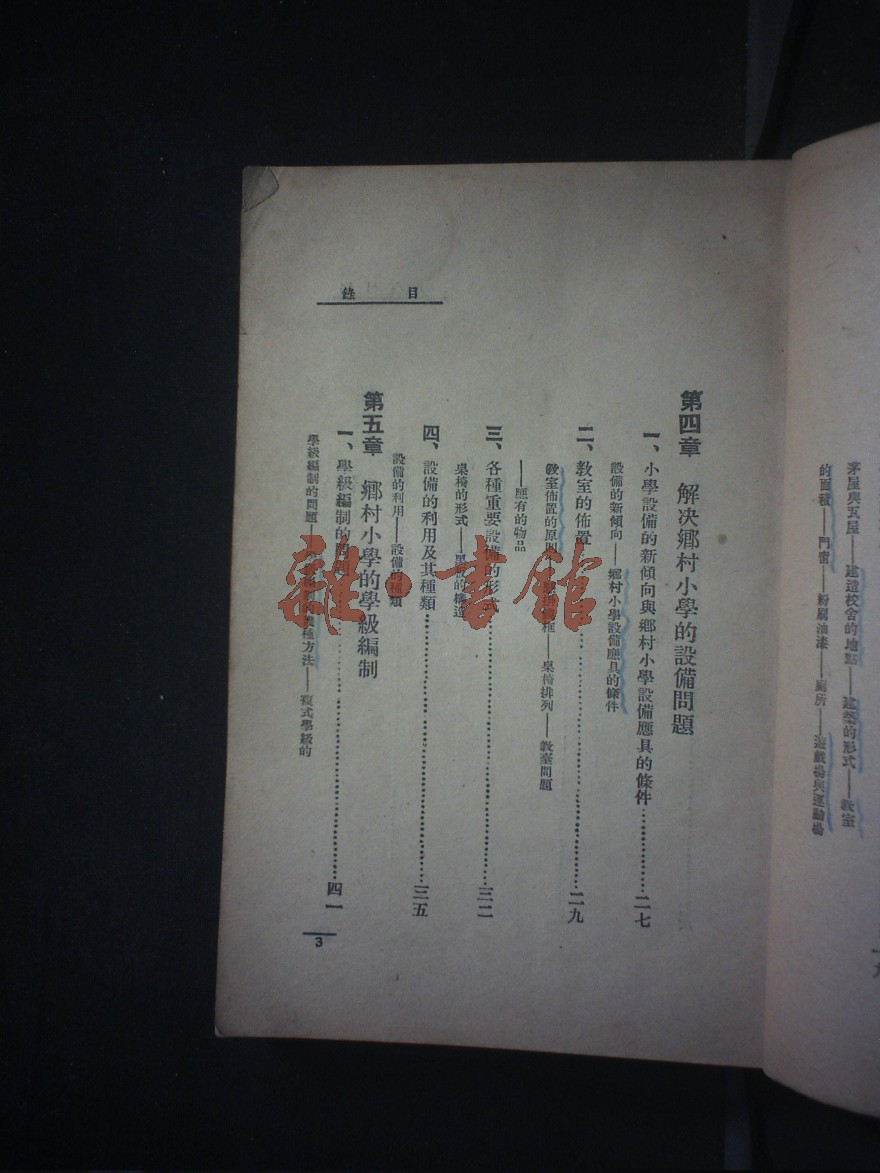 茅屋與瓦屋——建造校舍的地點——建築的形式——教室
的面積——門窗——粉刷油漆——廁所——遊戲場與運動場
目錄
第四章 解決鄉村小學的設備問題
一、小學設備的新傾向與鄉村小學設備應具的條件……二七
設備的新傾向——鄉村小學設備應具的條件
二、教室的佈置……二九
教室佈置的原則——桌椅排列——教室問題
——應有的物品
三、各種重要設備的形式……三二
桌椅的形式——黑板的構造
四、設備的利用及其種類……三五
設備的利用——設備的種類
第五章 鄉村小學的學級編制
一、學級編制的……四一
學級編制的問題——種方法——複式學級的
3
雜·書館